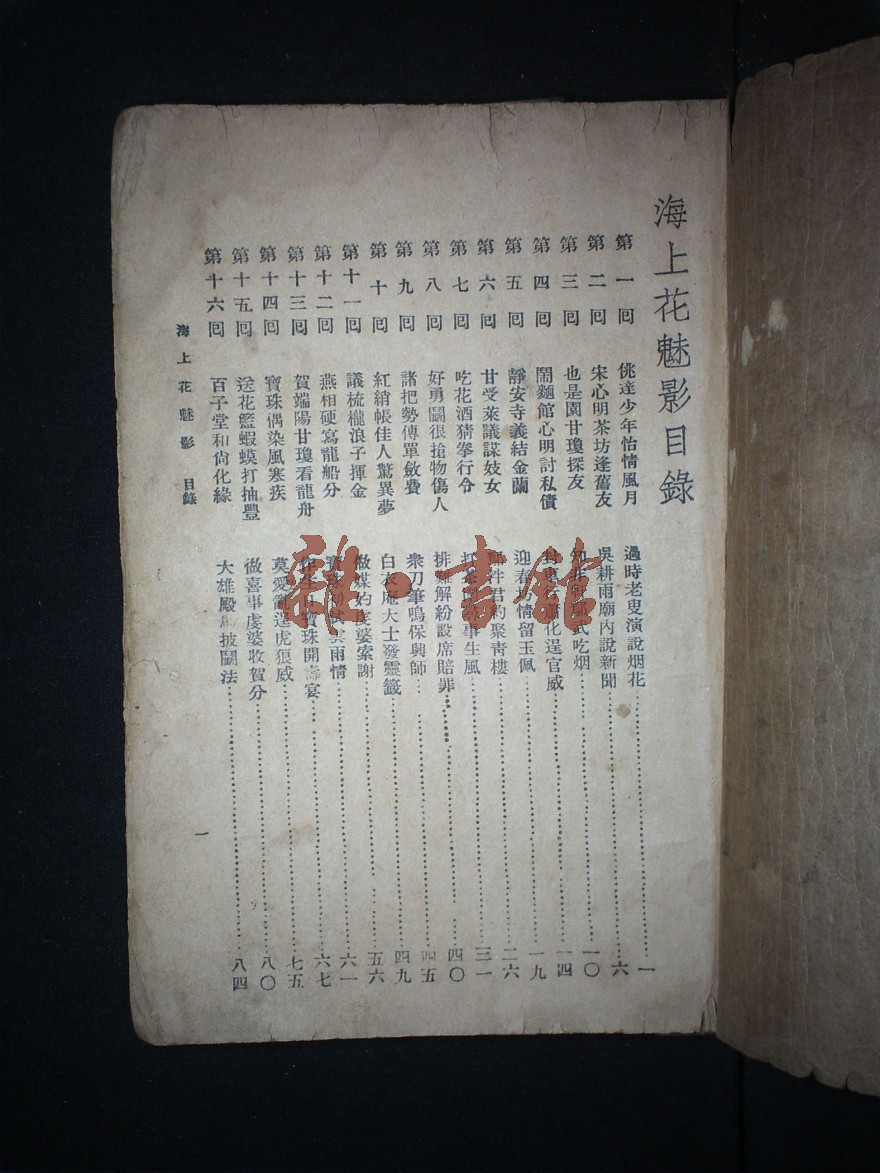 海上花魅影目錄
第一回 佻達少年怡情風月 過時老叟演說烟花 一
第二回 宋心明茶坊逢舊友 吳耕雨廟內說新聞 六
第三回 也是園甘瓊探友 知 吃烟 一〇
第四回 鬧麵館心明討私債 化逞官威 一四
第五回 靜安寺義結金蘭 迎春 情留玉佩 一九
第六回 甘受萊議謀妓女 君約聚青樓 二六
第七回 吃花酒猜拳行令 打茶 事生風 三一
第八回 好勇鬭很搶物傷人 排難解紛設席賠罪 四〇
第九回 諸把勢傳單斂費 衆刀筆鳴保興師 四五
第十回 紅綃帳佳人驚異夢 白衣庵大士發靈籤 四九
第十一回 議梳櫳浪子揮金 做媒妁虔婆索謝 五六
第十二回 燕相硬寫龍船分 寶珠 試雲雨情 六一
第十三回 賀端陽甘瓊看龍舟 寶珠開壽宴 六七
第十四回 寶珠偶染風寒疾 莫愛 逞虎狼威 七五
第十五回 送花籃蝦蟆打抽豐 做喜事虔婆收賀分 八〇
第十六回 百子堂和尙化緣 大雄殿 披鬭法 八四
海上花魅影 目錄
一
雜·書館